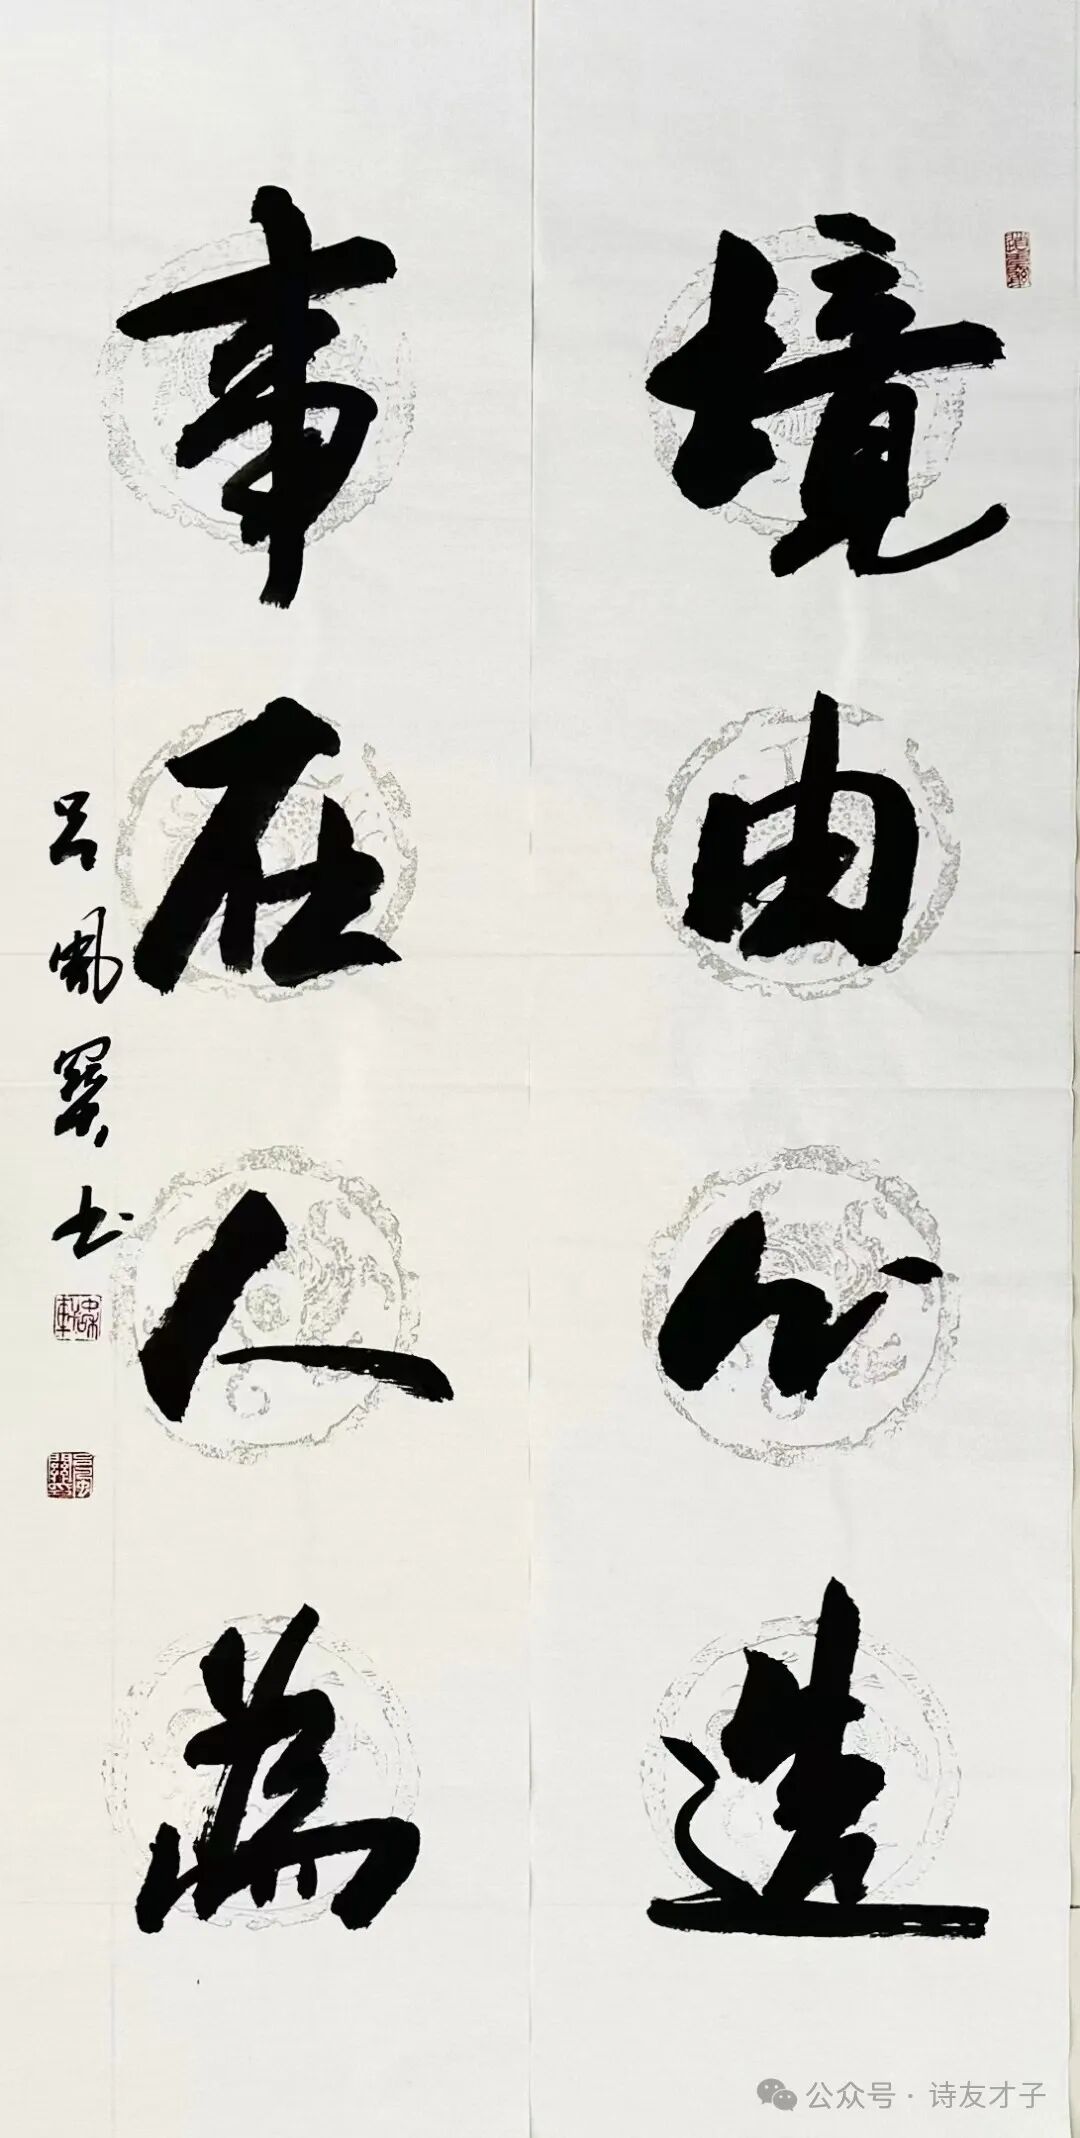 境由心造
事在人為
吕鳳翼书
公众号·诗友才子